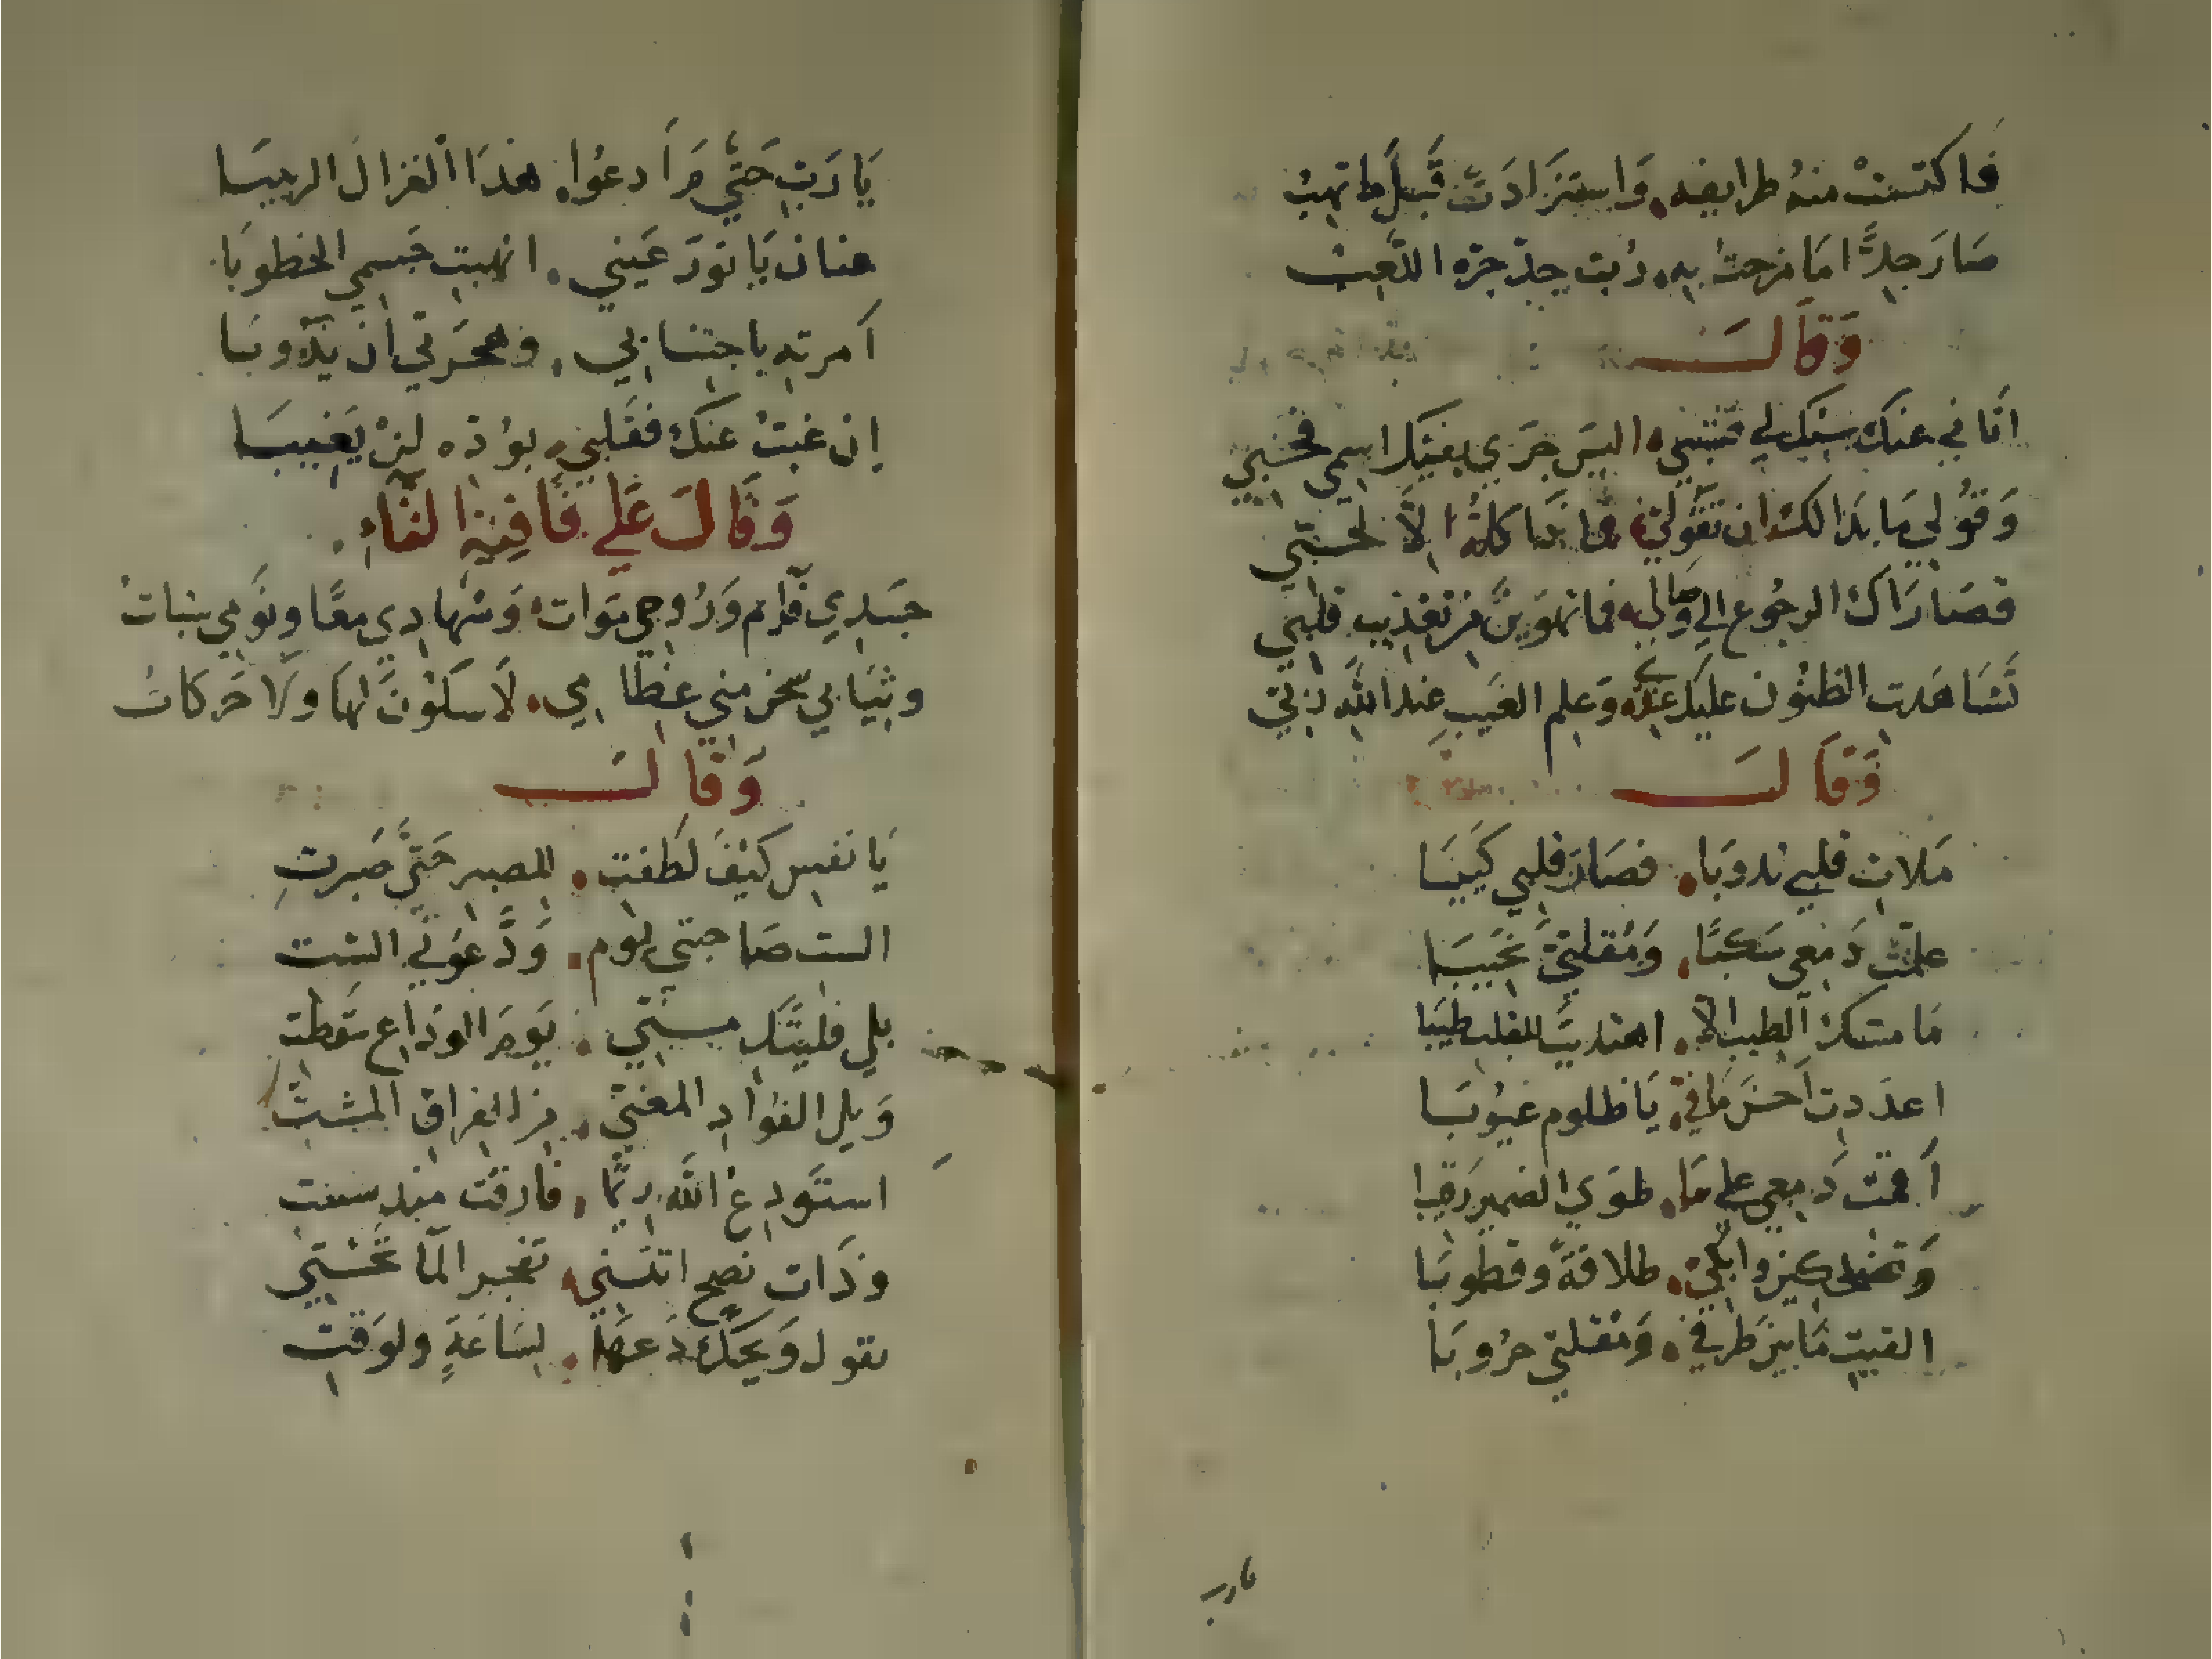 فاكتست منه طرايفه، واستزادت قبل ما تهب
صار جدًّا ما مزحت به، ربّ جدّ جرّه اللعب
وقال
انا في عنك بينك لي فثنني، اليس جري بفيك اسمي فحسبي
وقولي ما بدا لك ان تقولي، فما ذا كله الا لحبّي
قصاراك الرجوع الي وصالي، فما تهوين من تعذيب قلبي
تشاهدت الظنون عليك عندي، وعلم الغيب عند الله ربّي
وقال
ملات قلبي ندوبا، فصار قلبي كييبا
علمت دمعي سكبًا، ومقلتي نحيبا
ما مسك الطيب الا، اهديت للقلب طيبا
اعددت احسن ما في، يا ظلوم عيوبا
اقمت دمعي على ما، طوي الضمير رقيبا
وتضحكين وابكي، طلاقةً وقطوبا
القيت ما بين طرفي، ومقلتي حروبا
يارب
يا رب حتّي مرا دعوا، هذا الغزال الربيبا
حنان يا نور عيني، انهبت جسمي الخطوبا
امرته باجتنابي، وهجرتي ان يذوبا
ان غبت عنك فقلبي، بوده لن يغيبا
وقال علي قافية التاء
جسدي قايم وروحي موات، وسهادي معًا ونومي بنبات
وثيابي تسخر مني عظامي، لا سكون لها ولا حركات
وقال
يا نفس كيف لطفت، للصبر حتّي صبرت
الست صاحبتي يوم، ودّعوني الست
بلي فليتك مستي، يوم الوداع سقطت
ويل الفؤاد المعني، من الفراق المشت
استودع الله ربما، فارقت منذ سنت
وذات نصح اتتني، تفجر الما تحتي
تقول ويحك دعها، لساعةٍ ولوقت